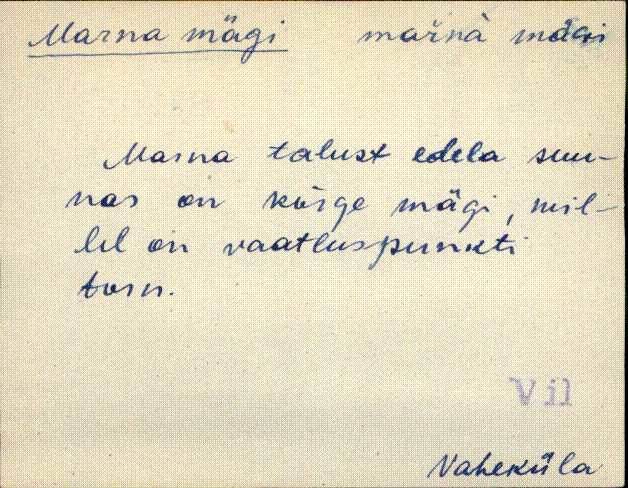 Marna mägi marnà mägi
Marna talust edela suu-
nas on kõrge mägi, mil-
lel on vaatluspunkti
torn.
Vil
Vaheküla